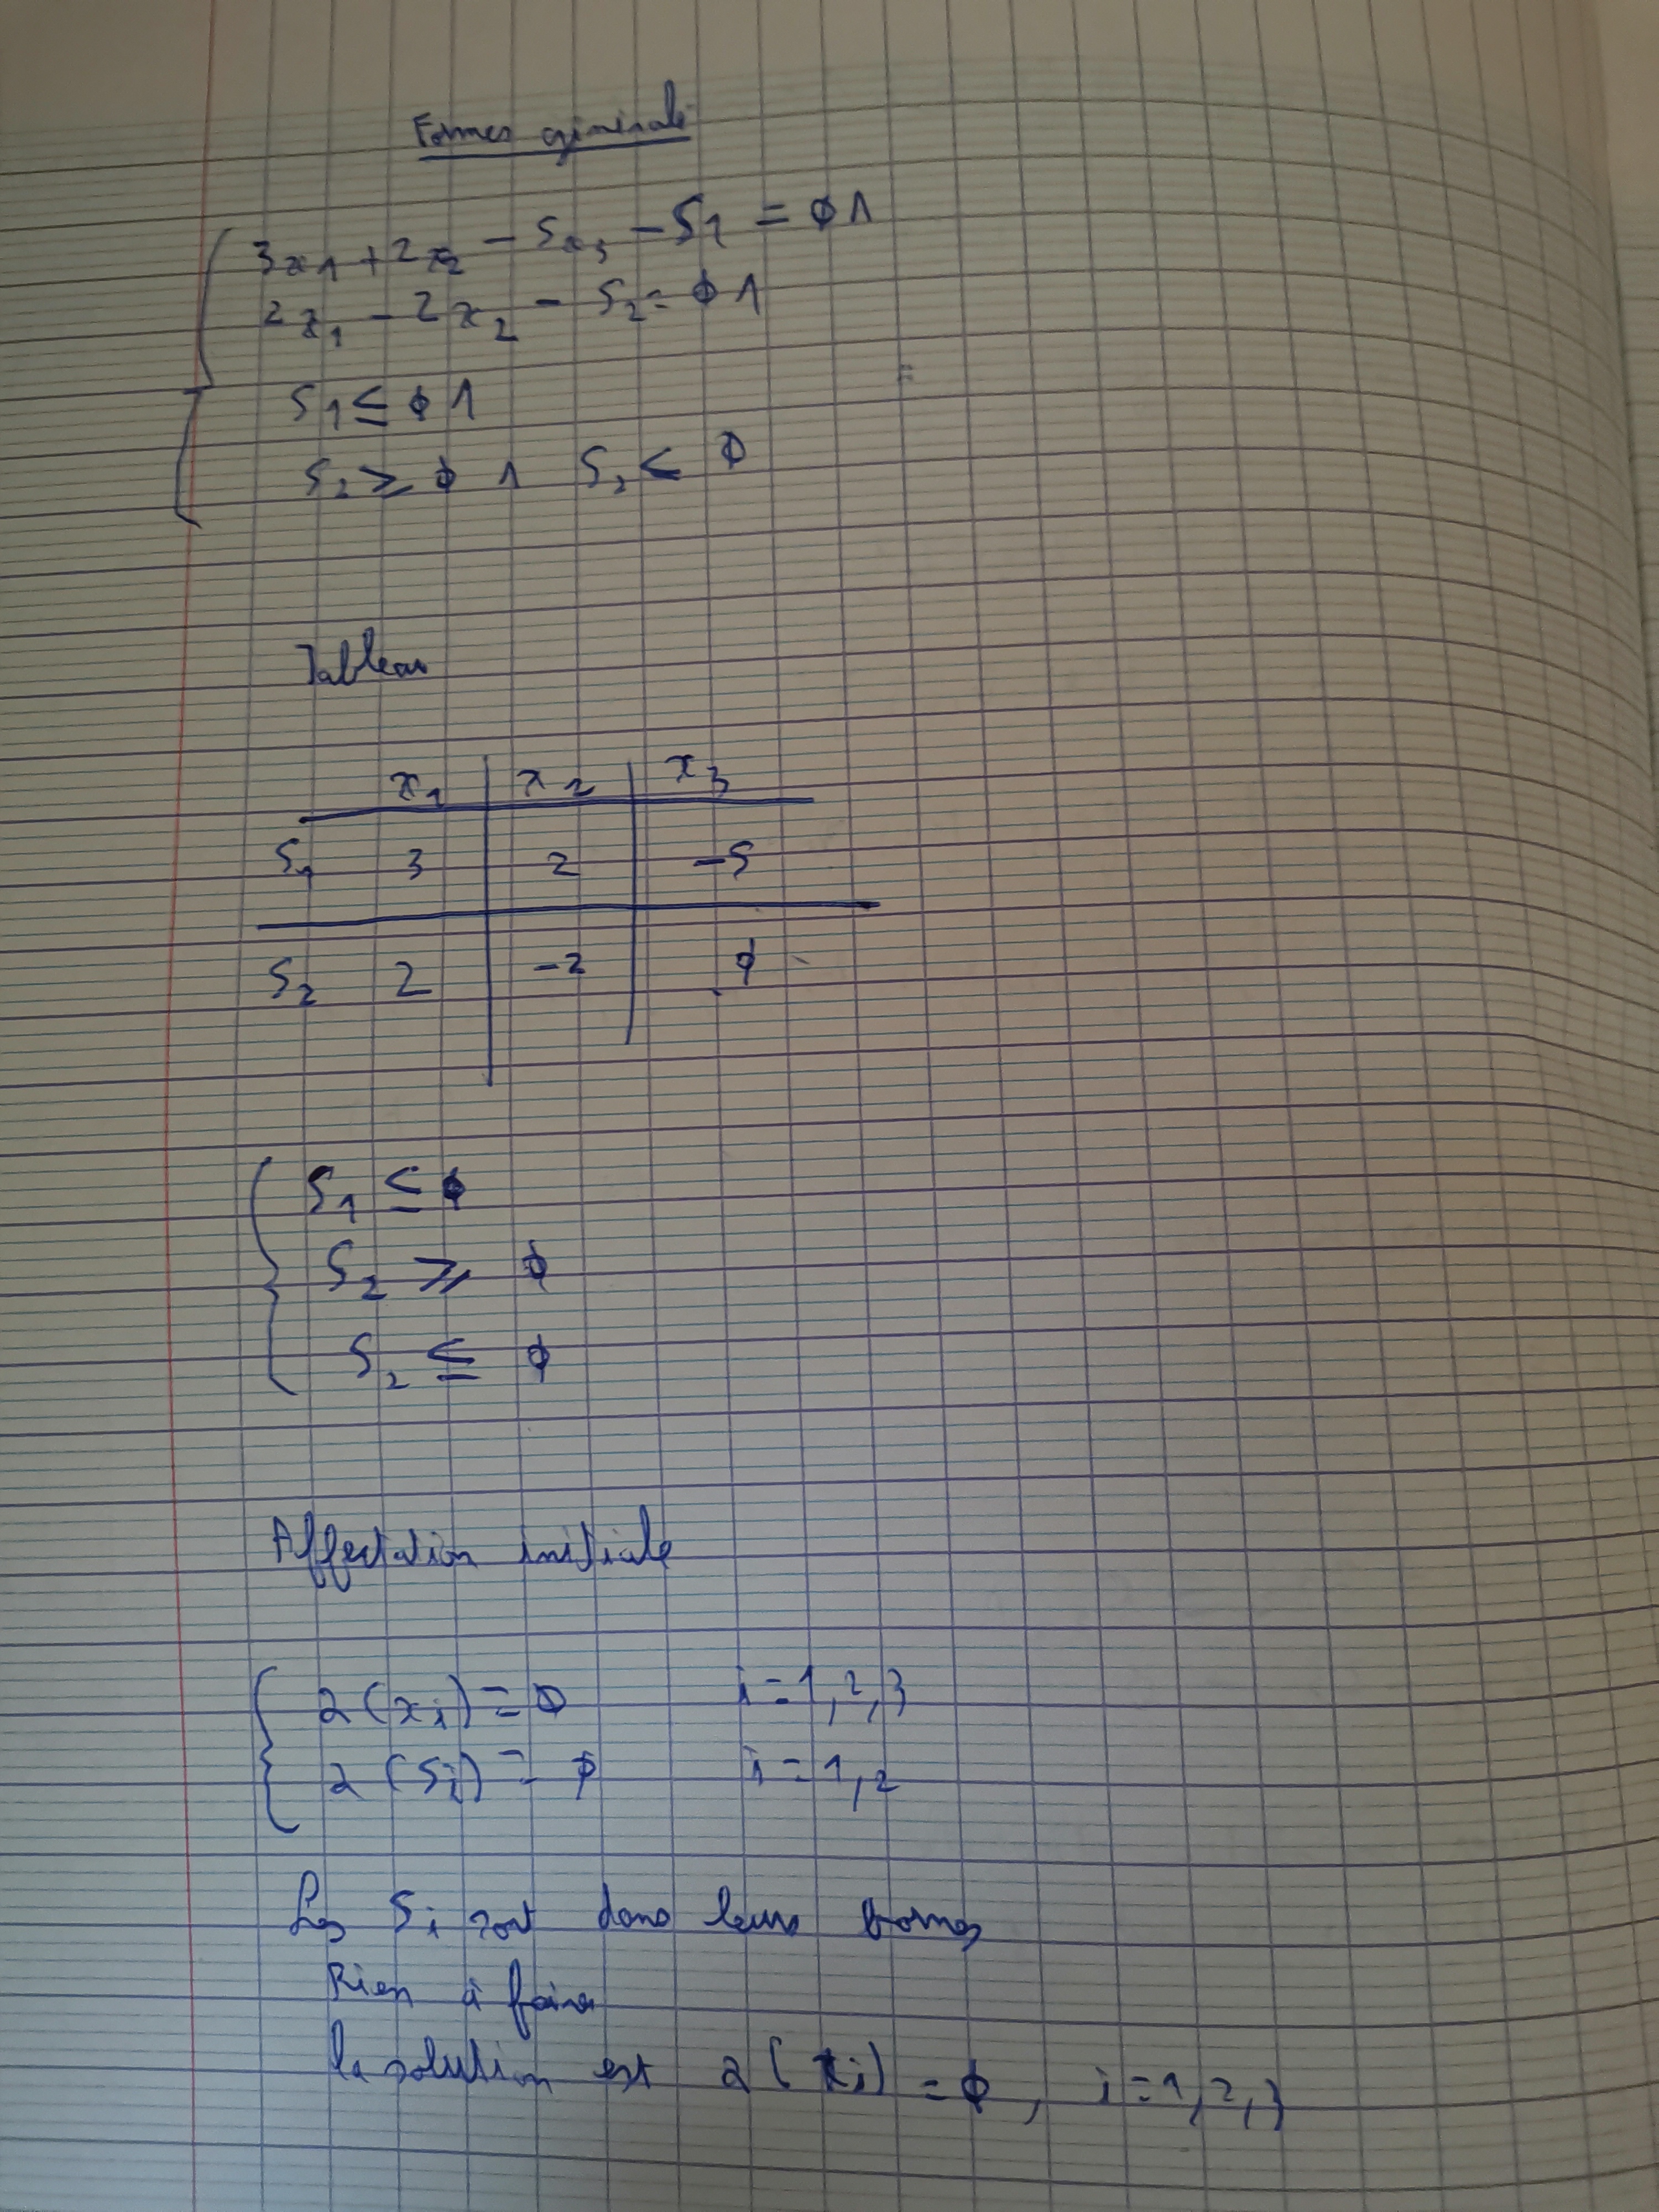 Formes générale
3x₁ + 2x₂ - 5x₃ - S₁ = 0 ∧
2x₁ - 2x₂ - S₂ = 0 ∧
S₁ ≤ 0 ∧
S₂ ≥ 0 ∧ S₂ ≤ 0
Tableau
x₁ x₂ x₃
S₁ 3 2 -5
S₂ 2 -2 0
S₁ ≤ 0
S₂ ≥ 0
S₂ ≤ 0
Affectation initiale
α(xᵢ) = 0 i = 1, 2, 3
α(Sᵢ) = 0 i = 1, 2
Les Sᵢ sont dans leurs bornes
Rien à faire
la solution est α(xᵢ) = 0, i = 1, 2, 3